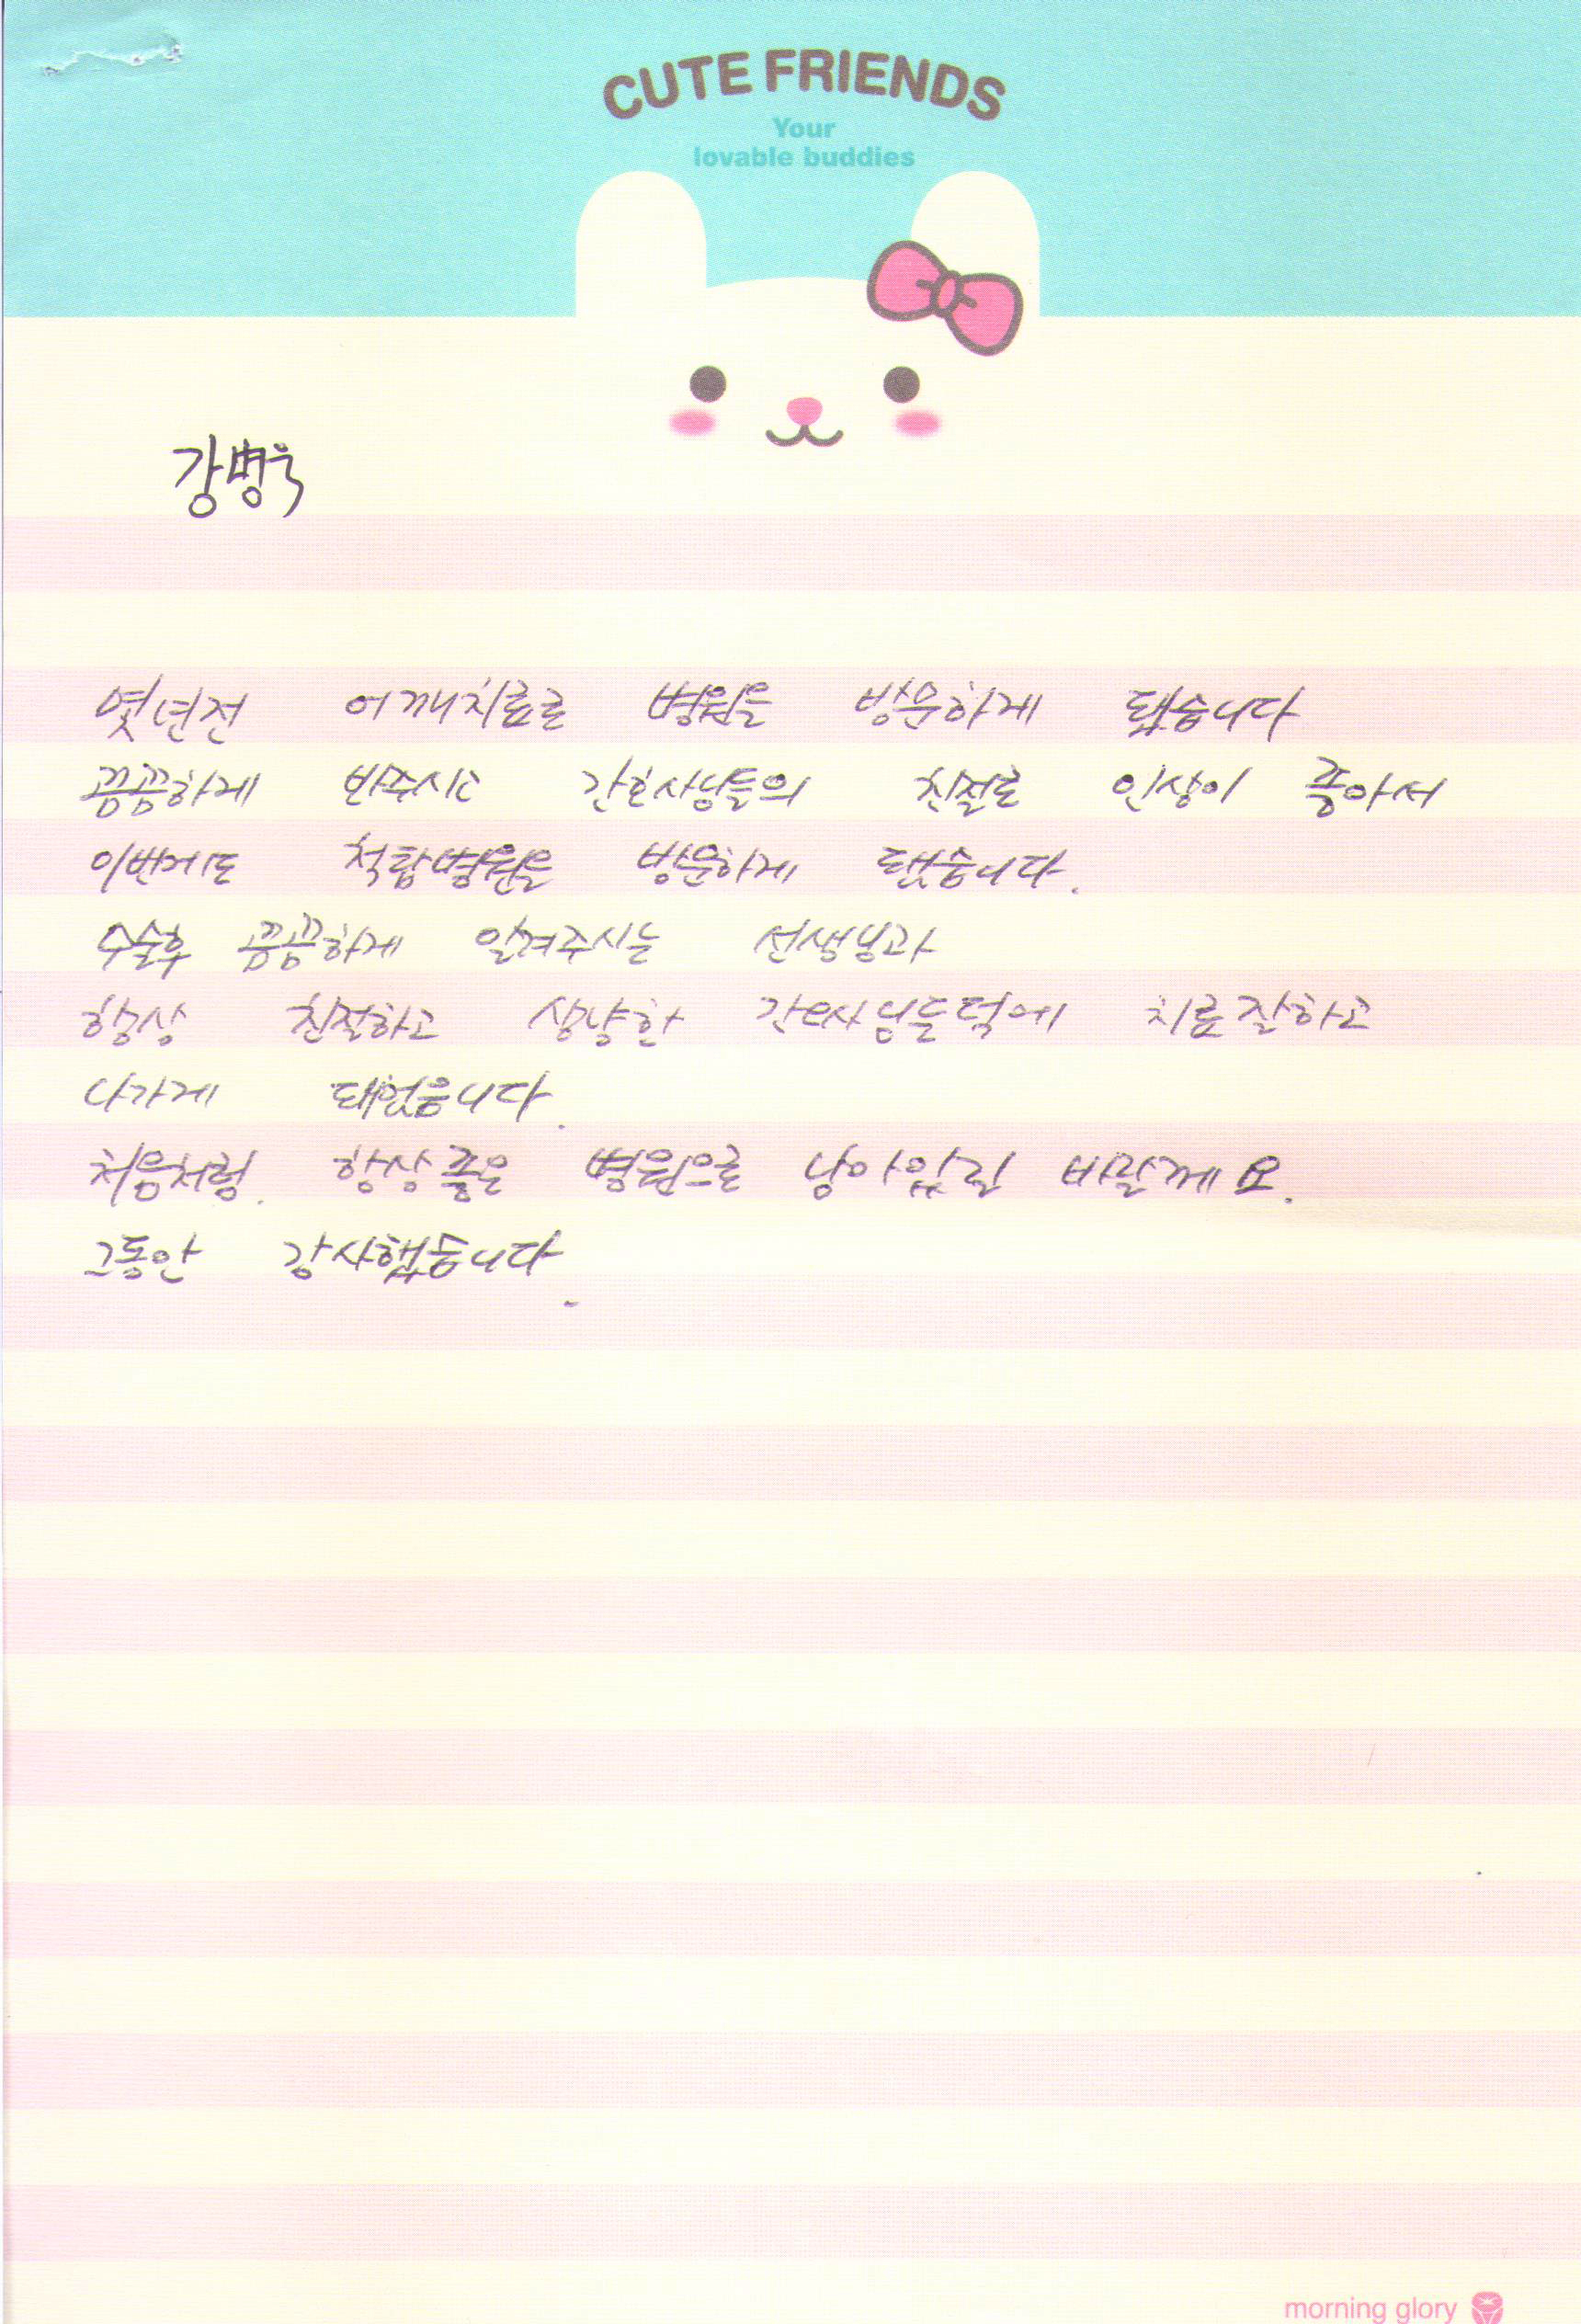 CUTE FRIENDS
Your
lovable buddies
몇년전 어깨치료로 병원을 방문하게 됐습니다
꼼꼼하게 봐주시고 간호사님들의 친절로 인상이 좋아서
이번에도 척탑병원을 방문하게 됐습니다.
수술후 꼼꼼하게 알려주시는 선생님과
항상 친절하고 상냥한 간호사님들덕에 치료잘하고
나가게 돼었읍니다.
처음처럼. 항상좋은 병원으로 남아있길 바랄께요.
그동안 감사했습니다.
morning glory